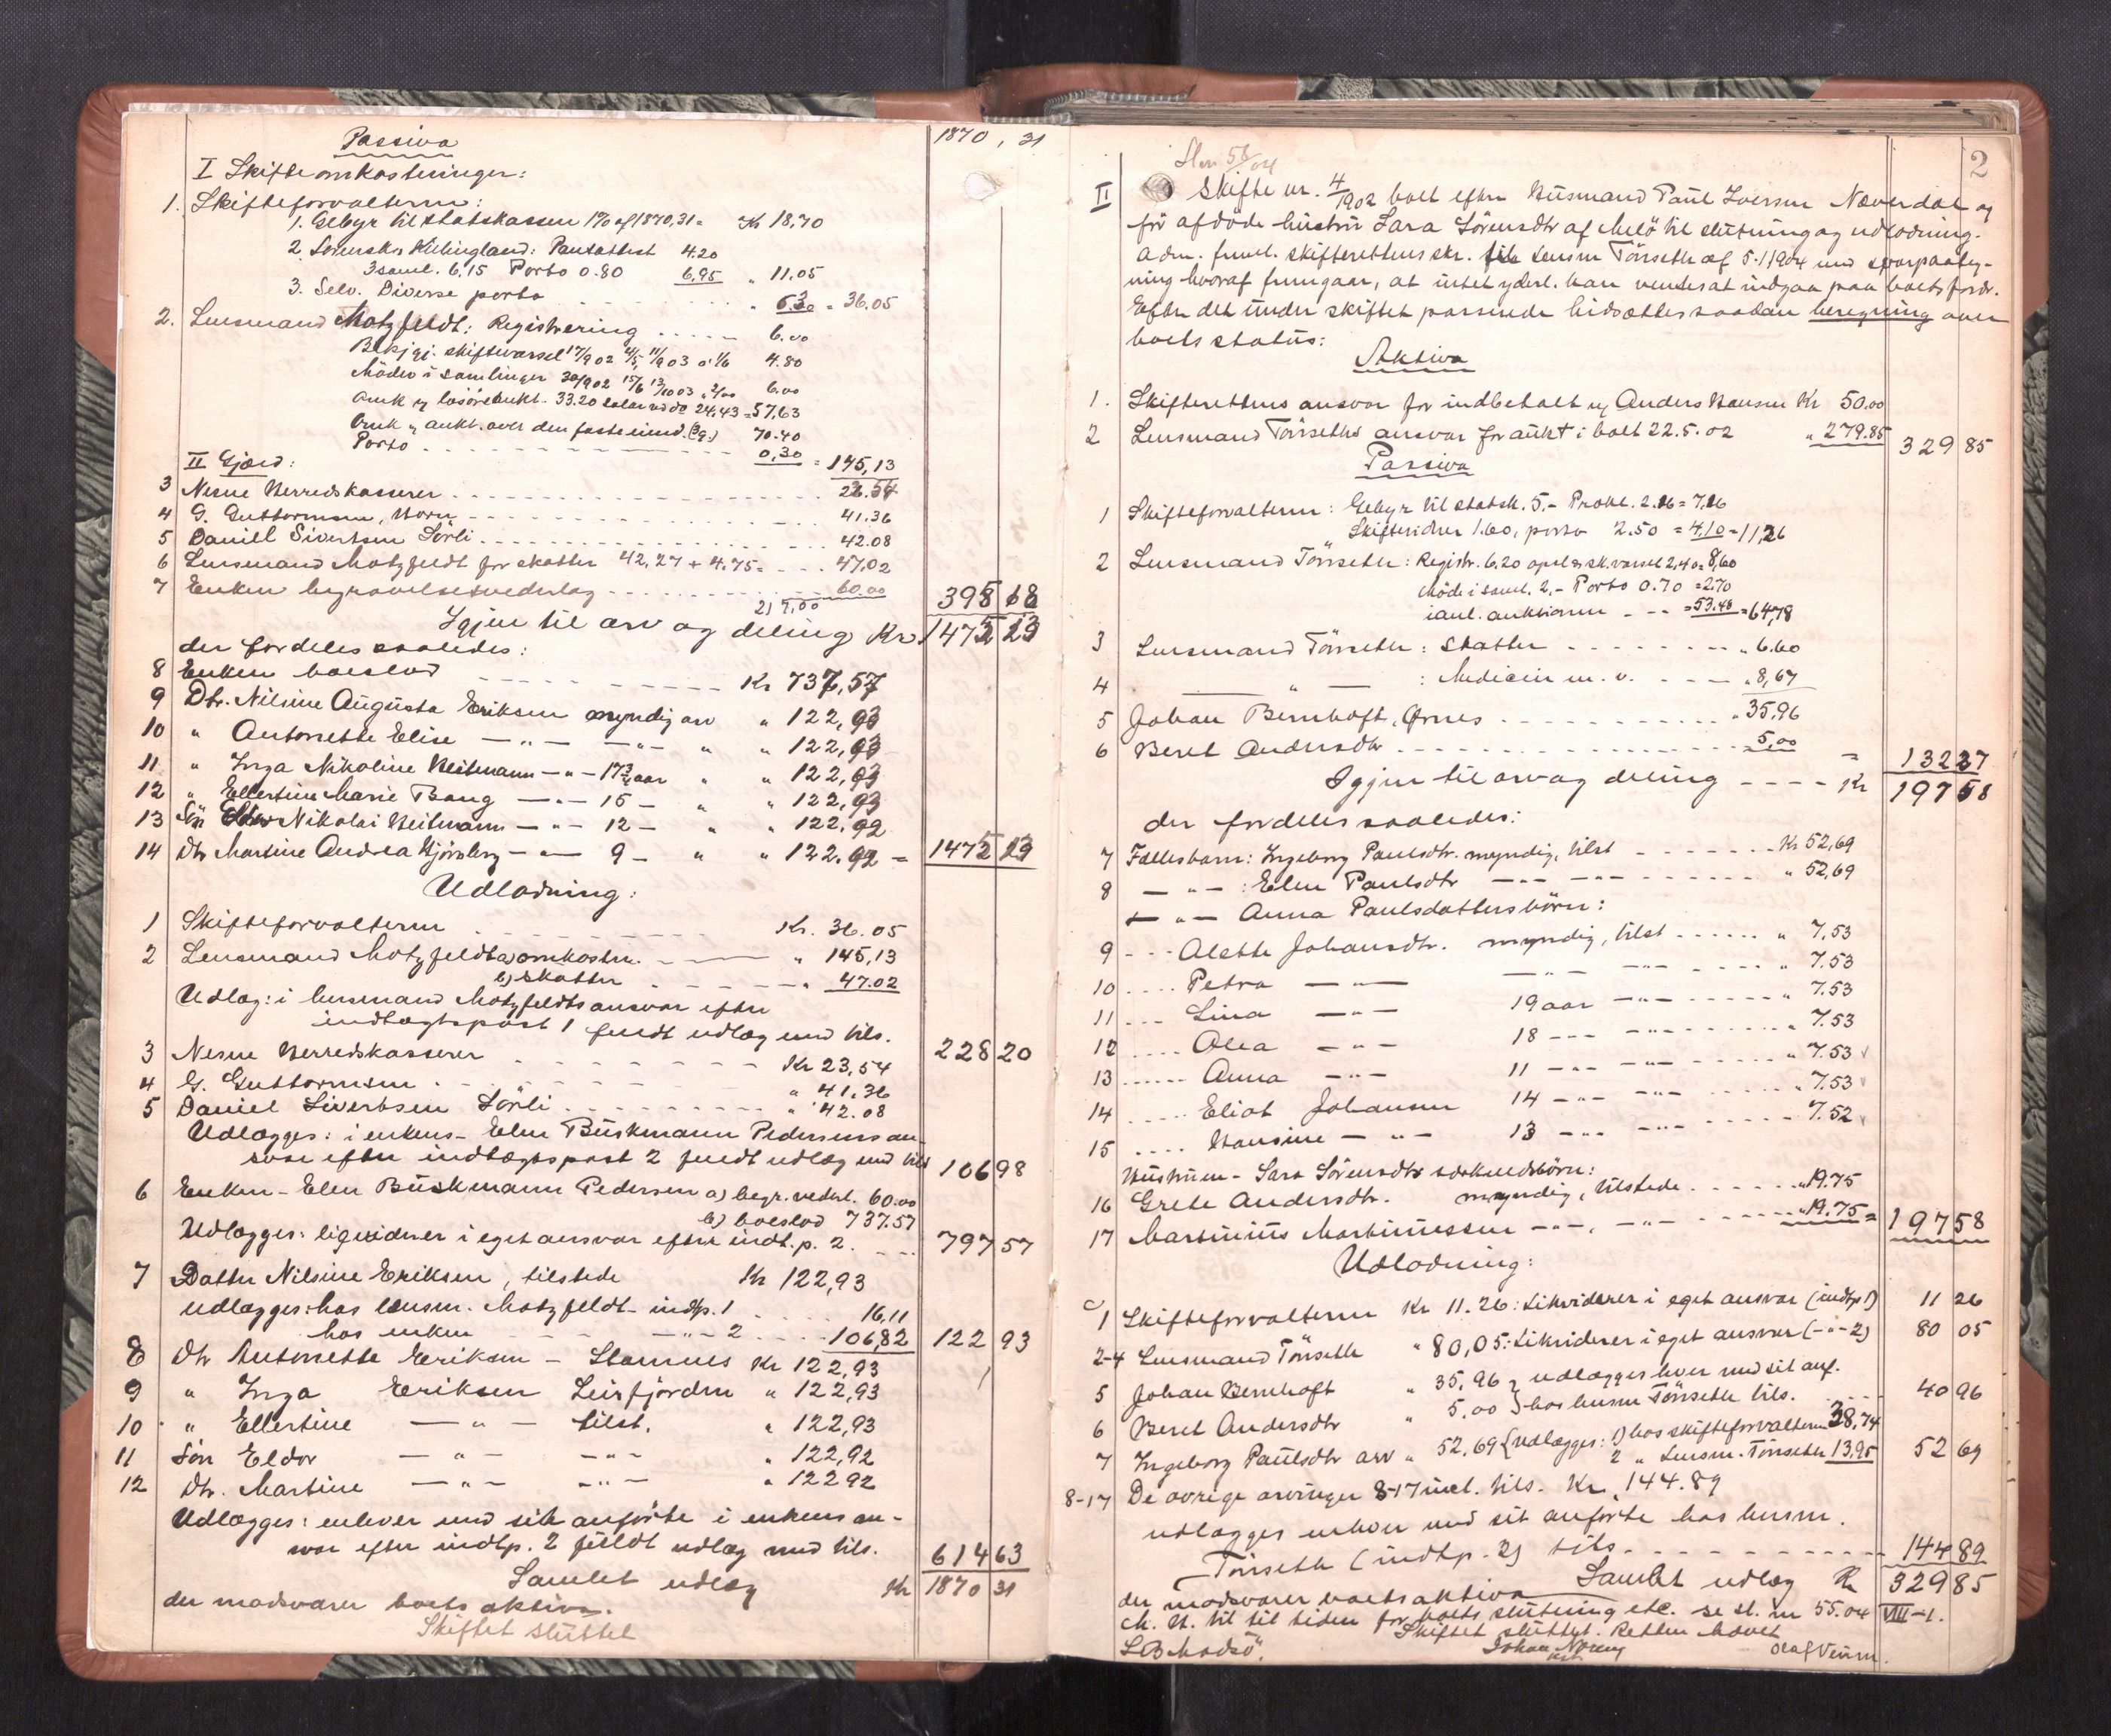 Passiva 1870,31
I Skifteomkostninger:
1. Skifteforvalteren:
1. Gebyr til statskassen 1% af 1870,31 = Kr 18,70
2. Sorenskr. : Pantattest 4.20
3 saml. 6.15 Porto 0.80 6,95 " 11.05
3. Selv. Diverse porto " 6.30 = 36.05
2. Lensmand Motzfeldt: Registrering 6.00
Bekjgj. skiftevarsel 17/9 02 4/5 11/9 03 á 1/6 4.80
Möder i samlinger 30/9 02 15/6 13/10 03 á 2/00 6.00
Auk over lösöreaukt. 33.20 24,43 = 57,63
Auk " aukt. over den faste eiend. 70.40
Porto 0,30 = 145,13
II Gjæld:
3 Nesne Herredskasserer 23.54
4 G. Guttormsen, Horn 41.36
5 Daniel Sivertsen Sörli 42.08
6 Lensmand Motzfeldt for skatter 42,27 + 4.75 = 47,02
7 Enken begravelsesvederlag 60.00 395 18
Igjen til arv og deling Kr. 1475 13
der fordeles saaledes:
8 Enken boeslod Kr 737,57
9 Dtr. Nilsine Augusta Eriksen myndig arv " 122,93
10 " Antonette Elise — " — — " — " " 122,93
11 " Inga Nikoline Heitmann — " — 17 3/4 aar " " 122,93
12 " Ellertine Marie Bang — " — 15 — " " 122,93
13 Sön Eldor Nikolai Heitmann — " — 12 — " " 122,92
14 Dtr Martine Andrea Hjörsberg — " — 9 — " " 122.92 = 1475 13
Udlodning:
1 Skifteforvalteren Kr. 36.05
2 Lensmand Motzfeldt a) omkostn. " 145,13
b) skatter " 47.02
Udlæg: i lensmand Motzfeldts ansvar efter
indtægtspost 1 fuldt udlæg med tils. 228 20
3 Nesne Herredskasserer Kr 23,54
4 G. Guttormsen " 41.36
5 Daniel Sivertsen Sörli " 42.08
Udlægges: i enkens - Elen Buskmann Pedersens an-
svar efter indtægtspost 2 fuldt udlæg med tils 106 98
6 Enken - Elen Buskmann Pedersen a) begr. vederl. 60.00
b) boeslod 737.57
Udlægges: ligviderer i eget ansvar efter indt. p. 2. 797 57
7 Datter Nilsine Eriksen, tilstede Kr 122,93
udlægges: hos lensm. Motzfeldt - indtp. 1 16,11
hos enken — " — 2 106,82 122 93
8 Dtr Antonette Eriksen - Stamnes Kr 122,93
9 " Inga Eriksen Leirfjorden " 122,93
10 " Ellertine — " — tilst. " 122,93
11 Sön Eldor — " — — " — " 122,92
12 Dtr. Martine — " — — " — " 122 92
Udlægges: enhver med sit anförte i enkens an-
svar efter indtp. 2 fuldt udlæg med tils. 614 63
Samlet udlæg Kr 1870 31
der modsvarer boets aktiva.
Skiftet sluttet
2
Slnr 55/04
II Skifte nr. 4/1902 boet efter Husmand Paul Iversen Næverdal og
för afdöde hustru Sara Sörensdtr af Melö til slutning og udlodning.
Adm. freml. skifterettens skr. til lensm Tönseth af 5.1 1904 med svarpaateg-
ning hvoraf fremgaar, at intet yderl. kan ventes at indgaa paa boets fordr.
Efter det under skiftet passerede hidsættes saadan beregning over
boets status:
Aktiva
1. Skifterettens ansvar for indbetalt af Anders Hansen Kr 50.00
2 Lensmand Tönseths ansvar for aukt i boet 22.5.02 " 279.85 329 85
Passiva
1 Skifteforvalteren: Gebyr til statsk. 5.- Prokl. 2.16 = 7,16
" Skifteridner 1.60, porto 2.50 = 4,10 = 11,26
2 Lensmand Tönseth: Registr. 6.20 opsl. sk.varsel 2,40 = 8,60
Möde i saml. 2,- Porto 0.70 = 2.70
ianl. auktionen = 53.48 = 64,78
3 Lensmand Tönseth: skatter " 6.60
4 — " — : Medicin m. v. " 8,67
5 Johan Bernhoft, Ørnes " 35,96
6 Beret Andersdtr 5,00 = 132 27
Igjen til arv og deling Kr 197 58
der fordeles saaledes:
7 Fællesbarn: Ingeborg Paulsdtr. myndig, tilst Kr 52,69
8 — " — : Elen Paulsdtr — " — — " — " 52,69
— " — Anna Paulsdatters börn:
9 Alette Johansdtr. myndig, tilst " 7,53
10 Petra — " — — " — — " — " 7.53
11 Lina — " — 19 aar — " — " 7.53
12 Alea — " — 18 — " — " 7.53
13 Anna — " — 11 — " — " 7.53
14 Eliot Johansen 14 — " — " 7.53
15 Hansine — " — 13 — " — 7.52
Hustruen - Sara Sörensdtrs særkuldsbörn:
16 Grete Andersdtr. myndig, tilstede " 19.75
17 Martinius Martinussen — " — — " — " 19.75 = 197 58
Udlodning:
1 Skifteforvalteren Kr 11.26: Likviderer i eget ansvar (indtp 1) 11 26
2-4 Lensmand Tönseth " 80,05: Likviderer i eget ansvar (— " — 2) 80 05
5 Johan Bernhoft " 35,96 } udlægges hver med sit anf.
6 Beret Andersdtr " 5,00 } hos lensm Tönseth tils. 40 96
7 Ingeborg Paulsdtr arv " 52,69 { Udlægges: 1) hos skifteforvalteren 38,74
2 " Lensm. Tönseth 13,95 52 69
8-17 De övrige arvinger 8-17 incl. tils. Kr. 144.89
udlægges enhver med sit anförte hos lensm.
Tönseth (indtp. 2) tils. 144 89
Samlet udlæg Kr 329 85
der modsvarer boets aktiva
M. H. til tiden for boets slutning etc. se sl. nr 55.04 VIII-1.
Skiftet sluttet. Retten hævet
Johan Olaf